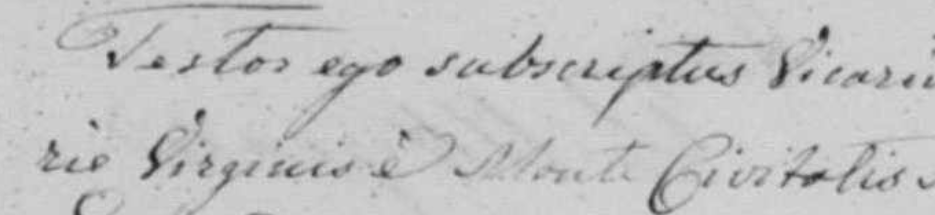 Testor ego subscriptus Vicariu
rie Virginis è Monte Civitatis